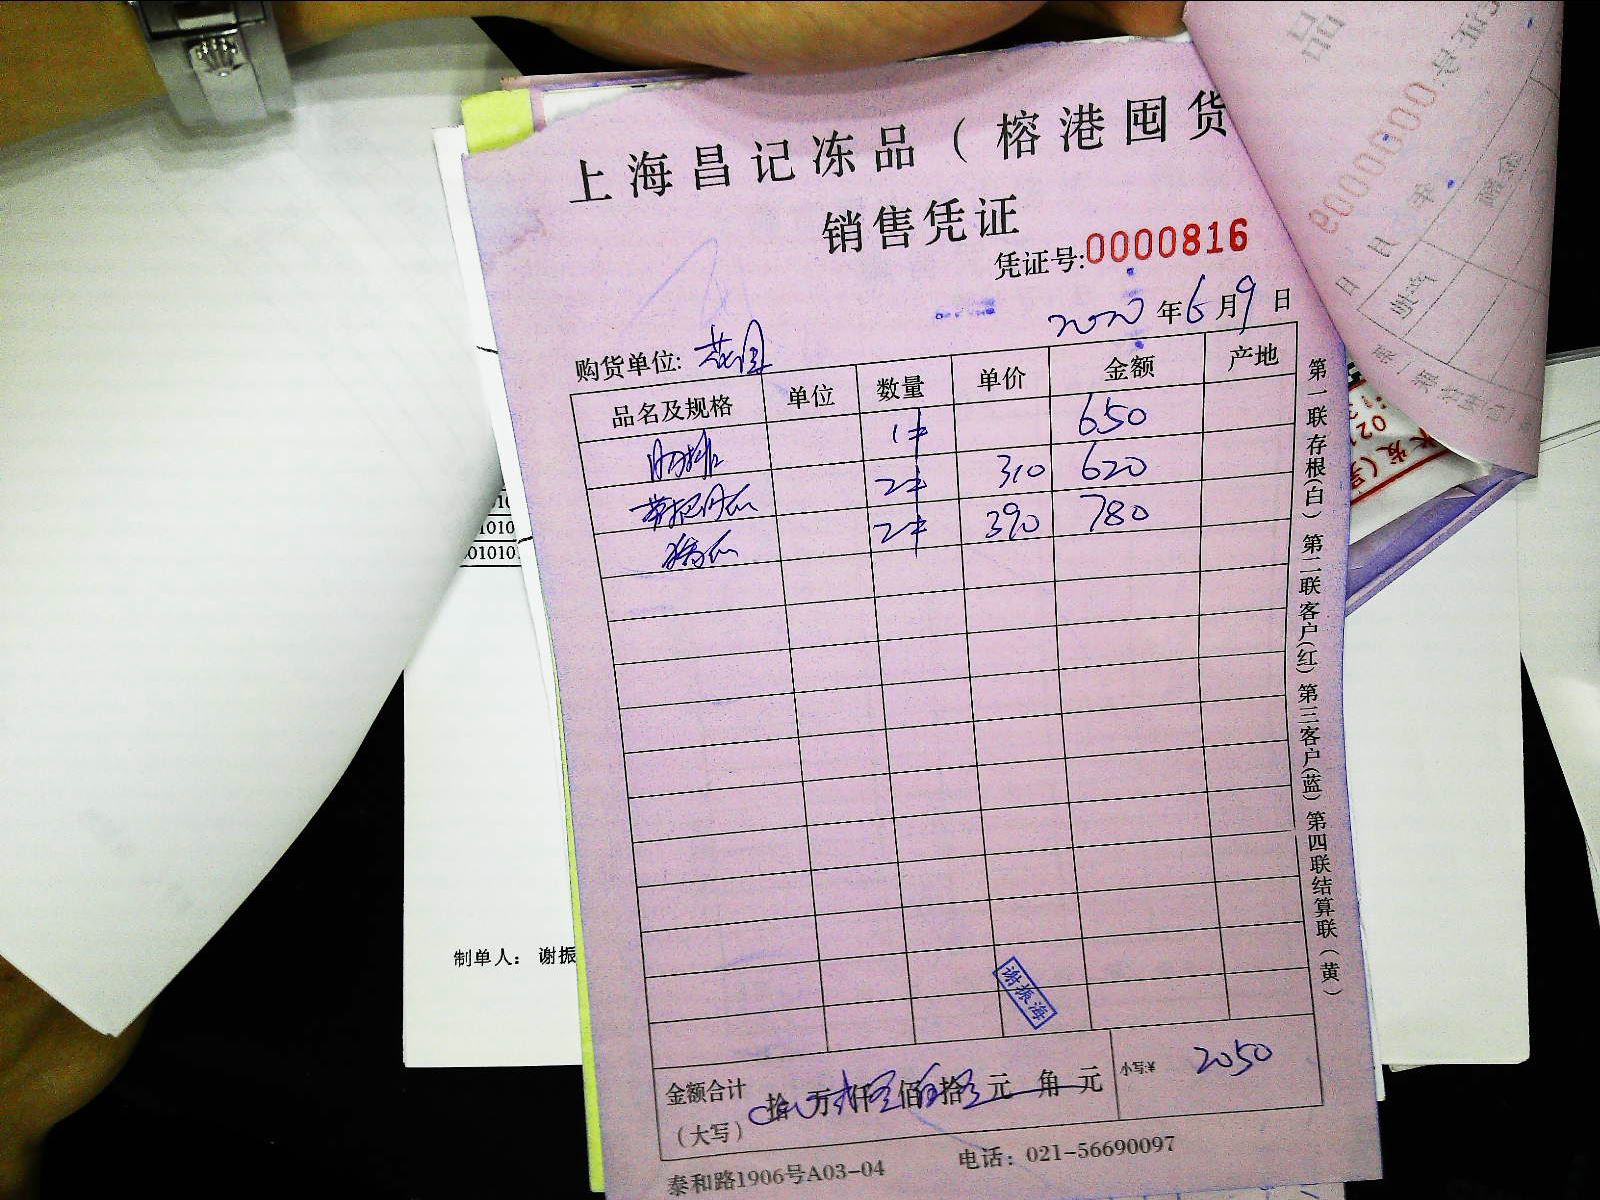 上海昌记冻品（榕港囤货
销售凭证
凭证号:0000816
2020年6月9日
购货单位:
品名及规格 单位 数量 单价 金额 产地
肋排 1件 650
带把肘瓜 2件 310 620
猪爪 2件 390 780
谢振海
金额合计（大写） 拾 万 仟 佰 拾 元 角 元 小写:¥ 2050
泰和路1906号A03-04 电话：021-56690097
第一联存根（白）第二联客户（红）第三客户（蓝）第四联结算联（黄）
制单人： 谢振